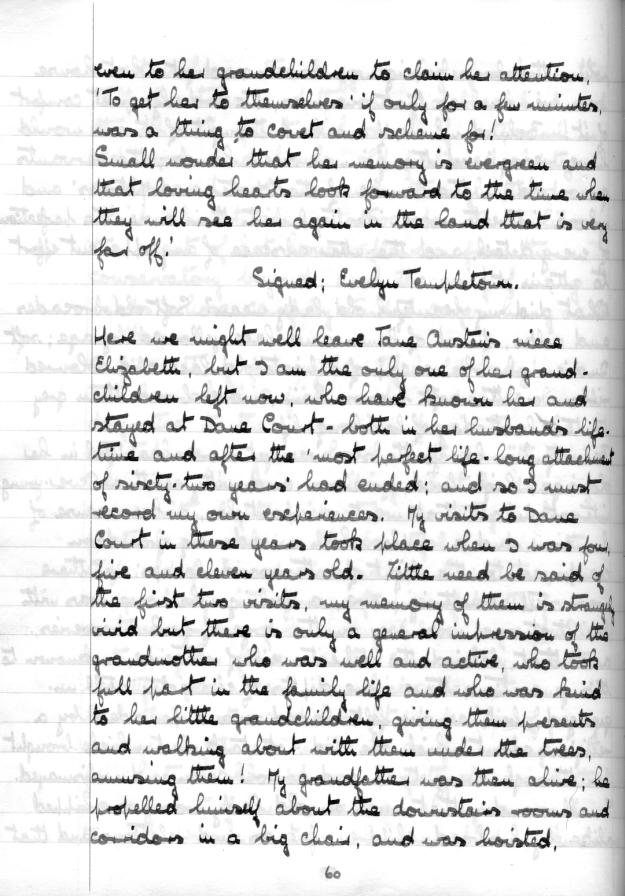 even to her grandchildren to claim her attention.
'To get her to themselves' if only for a few minutes,
was a thing to covet and scheme for!
Small wonder that her memory is evergreen and
that loving hearts look forward to the time when
they will see her again in the land that is very
far off.'
Signed; Evelyn Templetown.
Here we might well leave Jane Austen's niece
Elizabeth, but I am the only one of her grand-
children left now, who have known her and
stayed at Dane Court - both in her husband's life-
time and after the 'most perfect life-long attachment
of sixcty-two years' had ended; and so I must
record my own escperiences. My visits to Dane
Court in these years took place when I was four,
five and eleven years old. Little need be said of
the first two visits, my memory of them is strangely
vivid but there is only a general impression of the
grandmother who was well and active, who took
full part in the family life and who was kind
to her little grandchildren, giving them presents
and walking about with them under the trees,
amusing them! My grandfather was then alive; he
propelled himself about the downstairs rooms and
corridors in a big chair, and was hoisted,
60